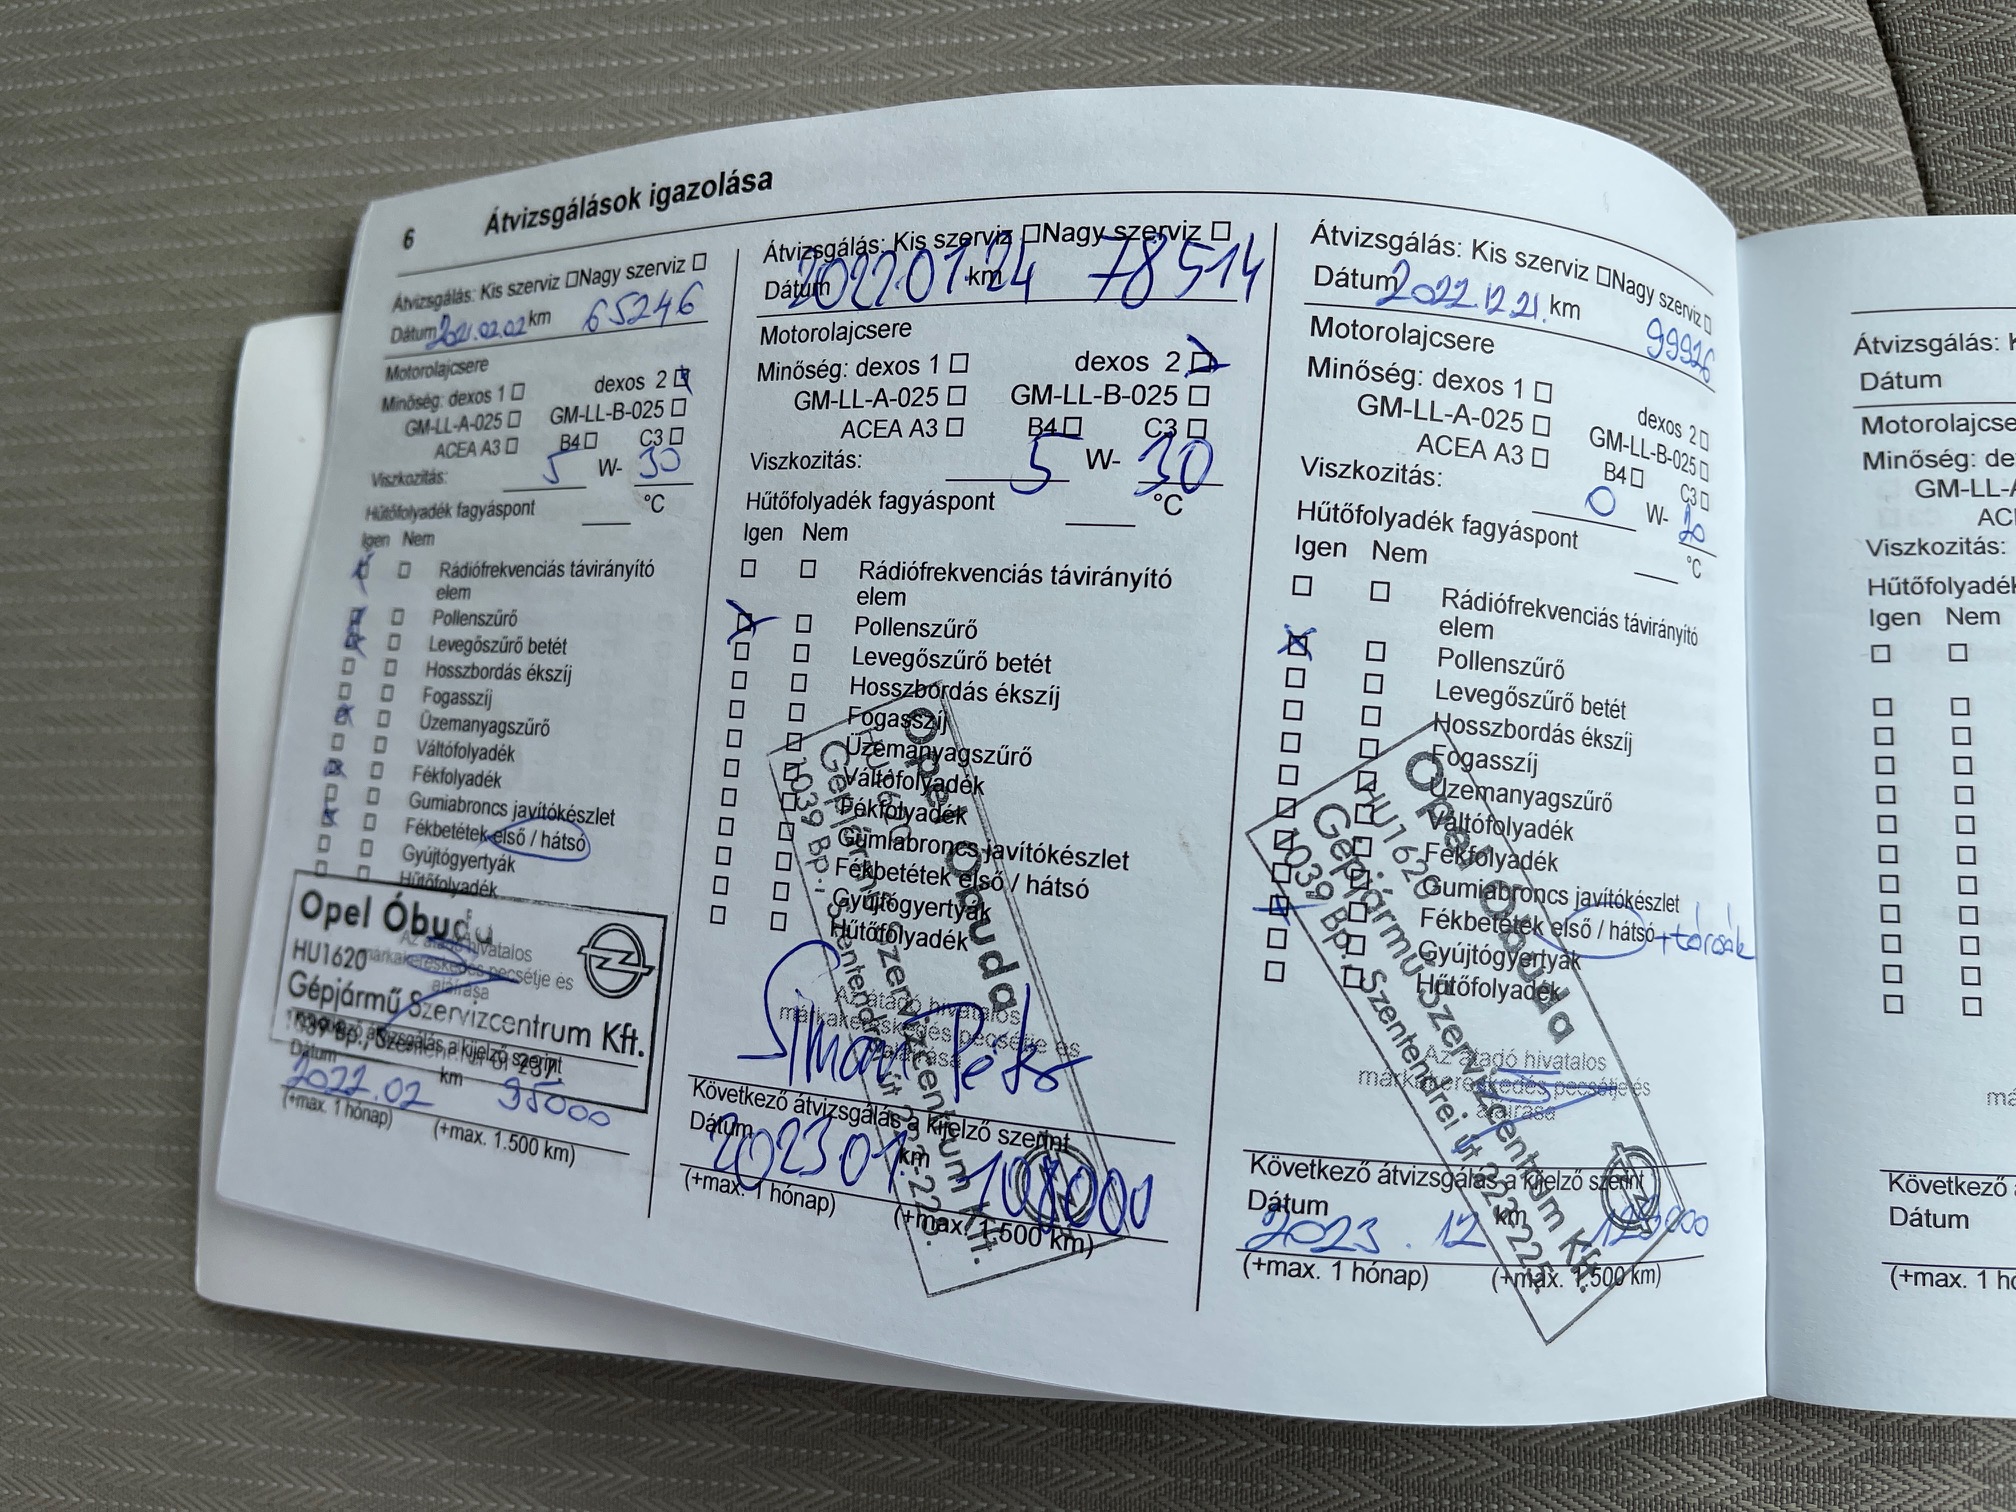 6 Átvizsgálások igazolása
Átvizsgálás: Kis szerviz Nagy szerviz
Dátum 2021.02.02 km 65246
Motorolajcsere
Minőség: dexos 1 dexos 2
GM-LL-A-025 GM-LL-B-025
ACEA A3 B4 C3
Viszkozitás: 5 W- 30
Hűtőfolyadék fagyáspont °C
Igen Nem
Rádiófrekvenciás távirányító
elem
Pollenszűrő
Levegőszűrő betét
Hosszbordás ékszíj
Fogasszíj
Üzemanyagszűrő
Váltófolyadék
Fékfolyadék
Gumiabroncs javítókészlet
Fékbetétek első / hátsó
Gyújtógyertyák
Hűtőfolyadék
Opel Óbuda
HU1620
Gépjármű Szervizcentrum Kft.
Az átadó hivatalos
márkakereskedés pecsétje és
aláírása
Dátum 2022.02 km 95000
(+max. 1 hónap) (+max. 1.500 km)
Átvizsgálás: Kis szerviz Nagy szerviz
Dátum 2022.01.24 km 78514
Motorolajcsere
Minőség: dexos 1 dexos 2
GM-LL-A-025 GM-LL-B-025
ACEA A3 B4 C3
Viszkozitás: 5 W- 30
Hűtőfolyadék fagyáspont °C
Igen Nem
Rádiófrekvenciás távirányító
elem
Pollenszűrő
Levegőszűrő betét
Hosszbordás ékszíj
Fogasszíj
Üzemanyagszűrő
Váltófolyadék
Fékfolyadék
Gumiabroncs javítókészlet
Fékbetétek első / hátsó
Gyújtógyertyák
Hűtőfolyadék
Opel Óbuda
Gépjármű Szervizcentrum Kft.
1039 Bp., Szentendrei út
Az átadó hivatalos
márkakereskedés pecsétje és
Következő átvizsgálás a kijelző szerint
Dátum 2023 01 km 108000
(+max. 1 hónap) (+max. 1.500 km)
Átvizsgálás: Kis szerviz Nagy szerviz
Dátum 2022.12.21. km 99926
Motorolajcsere
Minőség: dexos 1 dexos 2
GM-LL-A-025 GM-LL-B-025
ACEA A3 B4 C3
Viszkozitás: 0 W- 20
Hűtőfolyadék fagyáspont °C
Igen Nem
Rádiófrekvenciás távirányító
elem
Pollenszűrő
Levegőszűrő betét
Hosszbordás ékszíj
Fogasszíj
Üzemanyagszűrő
Váltófolyadék
Fékfolyadék
Gumiabroncs javítókészlet
Fékbetétek első / hátsó + tárcsák
Gyújtógyertyák
Hűtőfolyadék
Opel Óbuda
HU1620
Gépjármű Szervizcentrum Kft.
1039 Bp., Szentendrei út 223-225.
Az átadó hivatalos
márkakereskedés pecsétje és
aláírása
Következő átvizsgálás a kijelző szerint
Dátum 2023. 12 km
(+max. 1 hónap) (+max. 1.500 km)
Átvizsgálás:
Dátum
Minőség:
Viszkozitás:
Igen Nem
Következő
Dátum
(+max. 1